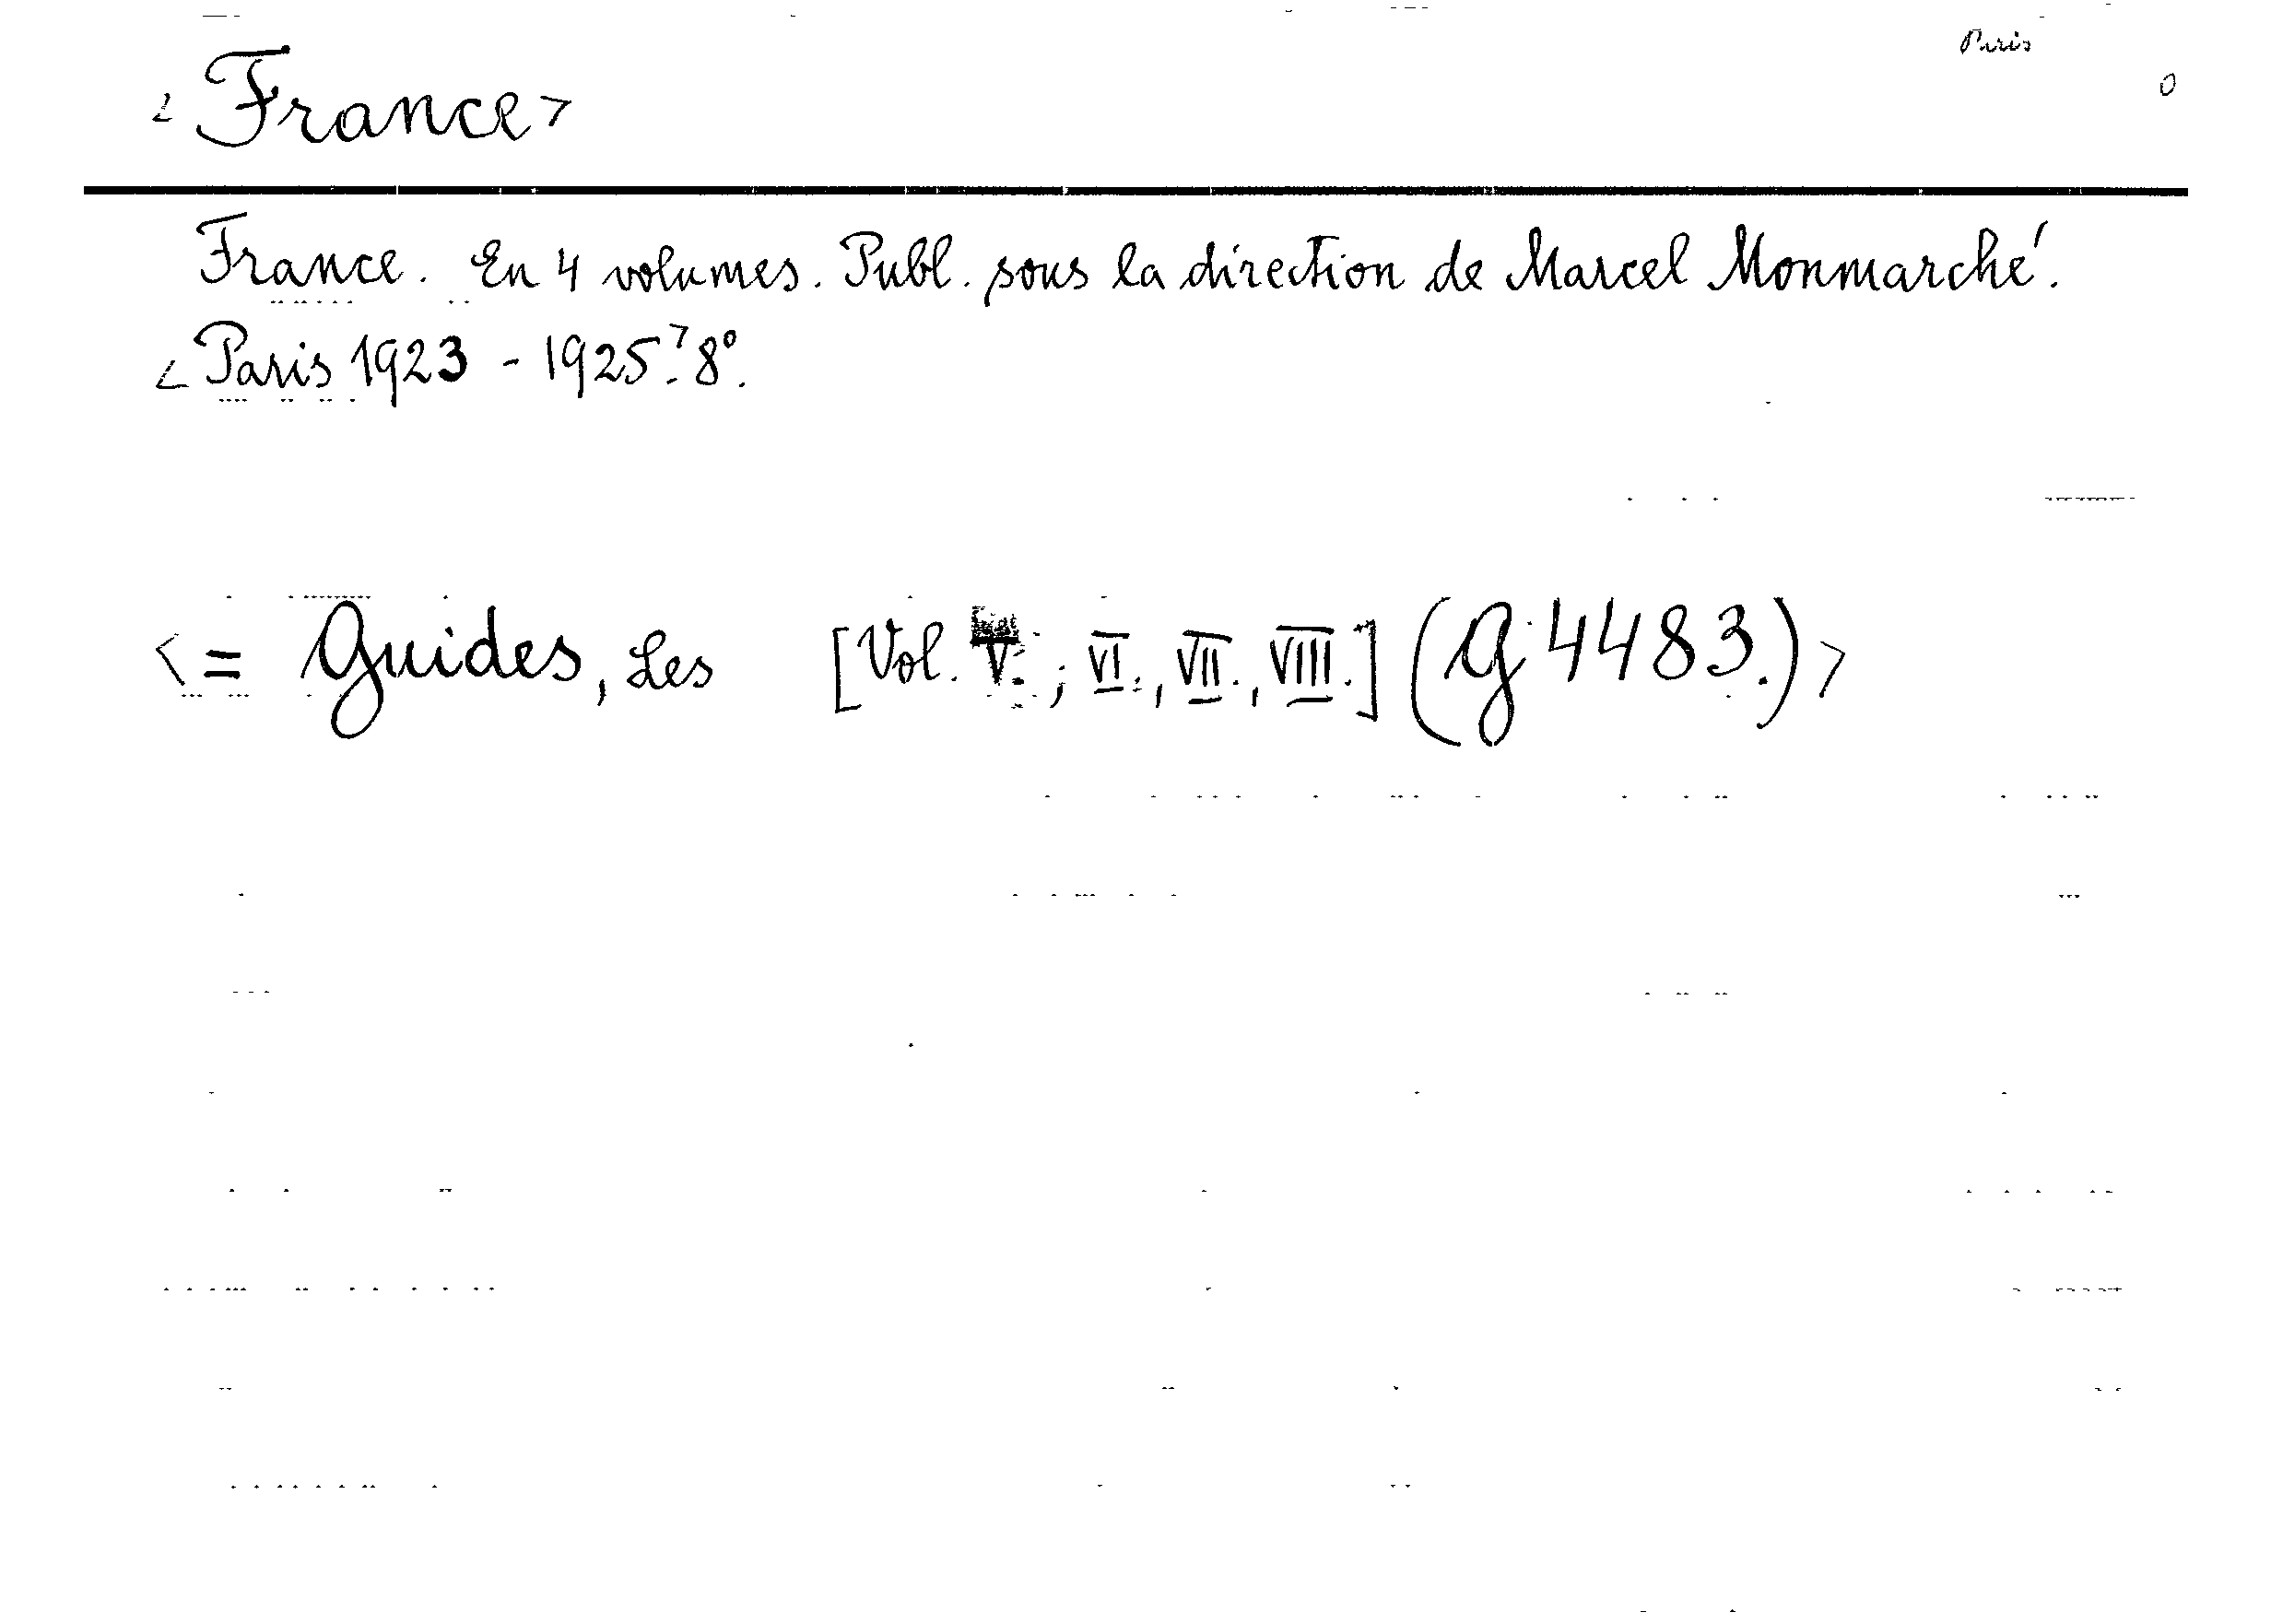 Paris
0
<France>
France. En 4 volumes. Publ. sous la direction de Marcel Monmarché.
<Paris 1923 - 1925.> 8°.
<= Guides, Les [Vol. V.; VI., VII., VIII.] (G 4483.)>